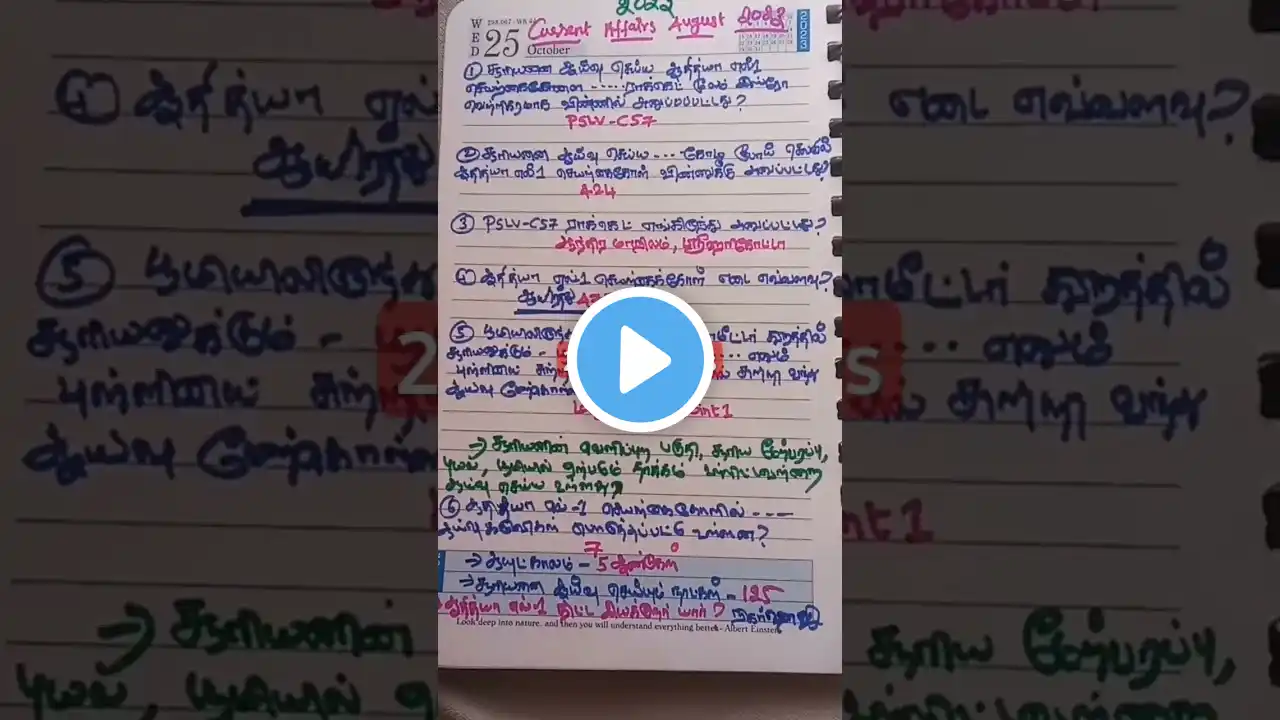 2022
WED 25 October
Current Affairs August 2023
2023
① சூரியனை ஆய்வு செய்ய ஆதித்யா எல்1
செயற்கைகோளை ...... ராக்கெட் மூலம் இஸ்ரோ
வெற்றிகரமாக விண்ணில் அனுப்பப்பட்டது?
PSLV-C57
② சூரியனை ஆய்வு செய்ய ... கோடி ரூபாய் செலவில்
ஆதித்யா எல்1 செயற்கைகோள் விண்ணுக்கு அனுப்பட்டது?
424
③ PSLV-C57 ராக்கெட் எங்கிருந்து அனுப்பட்டது?
ஆந்திர மாநிலம், ஸ்ரீஹரிகோட்டா
④ ஆதித்யா ஏல்1 செயற்கைக்கோள் எடை எவ்வளவு?
ஆயிரத்
⑤ பூமியிலிருந்து மீட்டர் தூரத்தில்
சூரியனுக்கும் - ... எனும்
புள்ளியை சுற்றி வந்து
ஆய்வு மேற்கொள்
nt1
→ சூரியனின் வெளிப்புற பகுதி, சூரிய மேற்பரப்பு,
புயல், பூமியில் ஏற்படும் தாக்கம் உள்ளிட்டவற்றை
ஆய்வு செய்ய உள்ளது
⑥ ஆதித்யா எல்-1 செயற்கைகோளில் ----
ஆய்வு கருவிகள் பொருத்தப்பட்டு உள்ளன?
7
→ ஆயுட்காலம் - 5 ஆண்கேள்
→ சூரியனை ஆய்வு செய்யும் நாட்கள் - 125
ஆதித்யா எல்-1 திட்ட இயக்குநர் யார்? நிகர்ஷாஜி
Look deep into nature, and then you will understand everything better - Albert Einstein